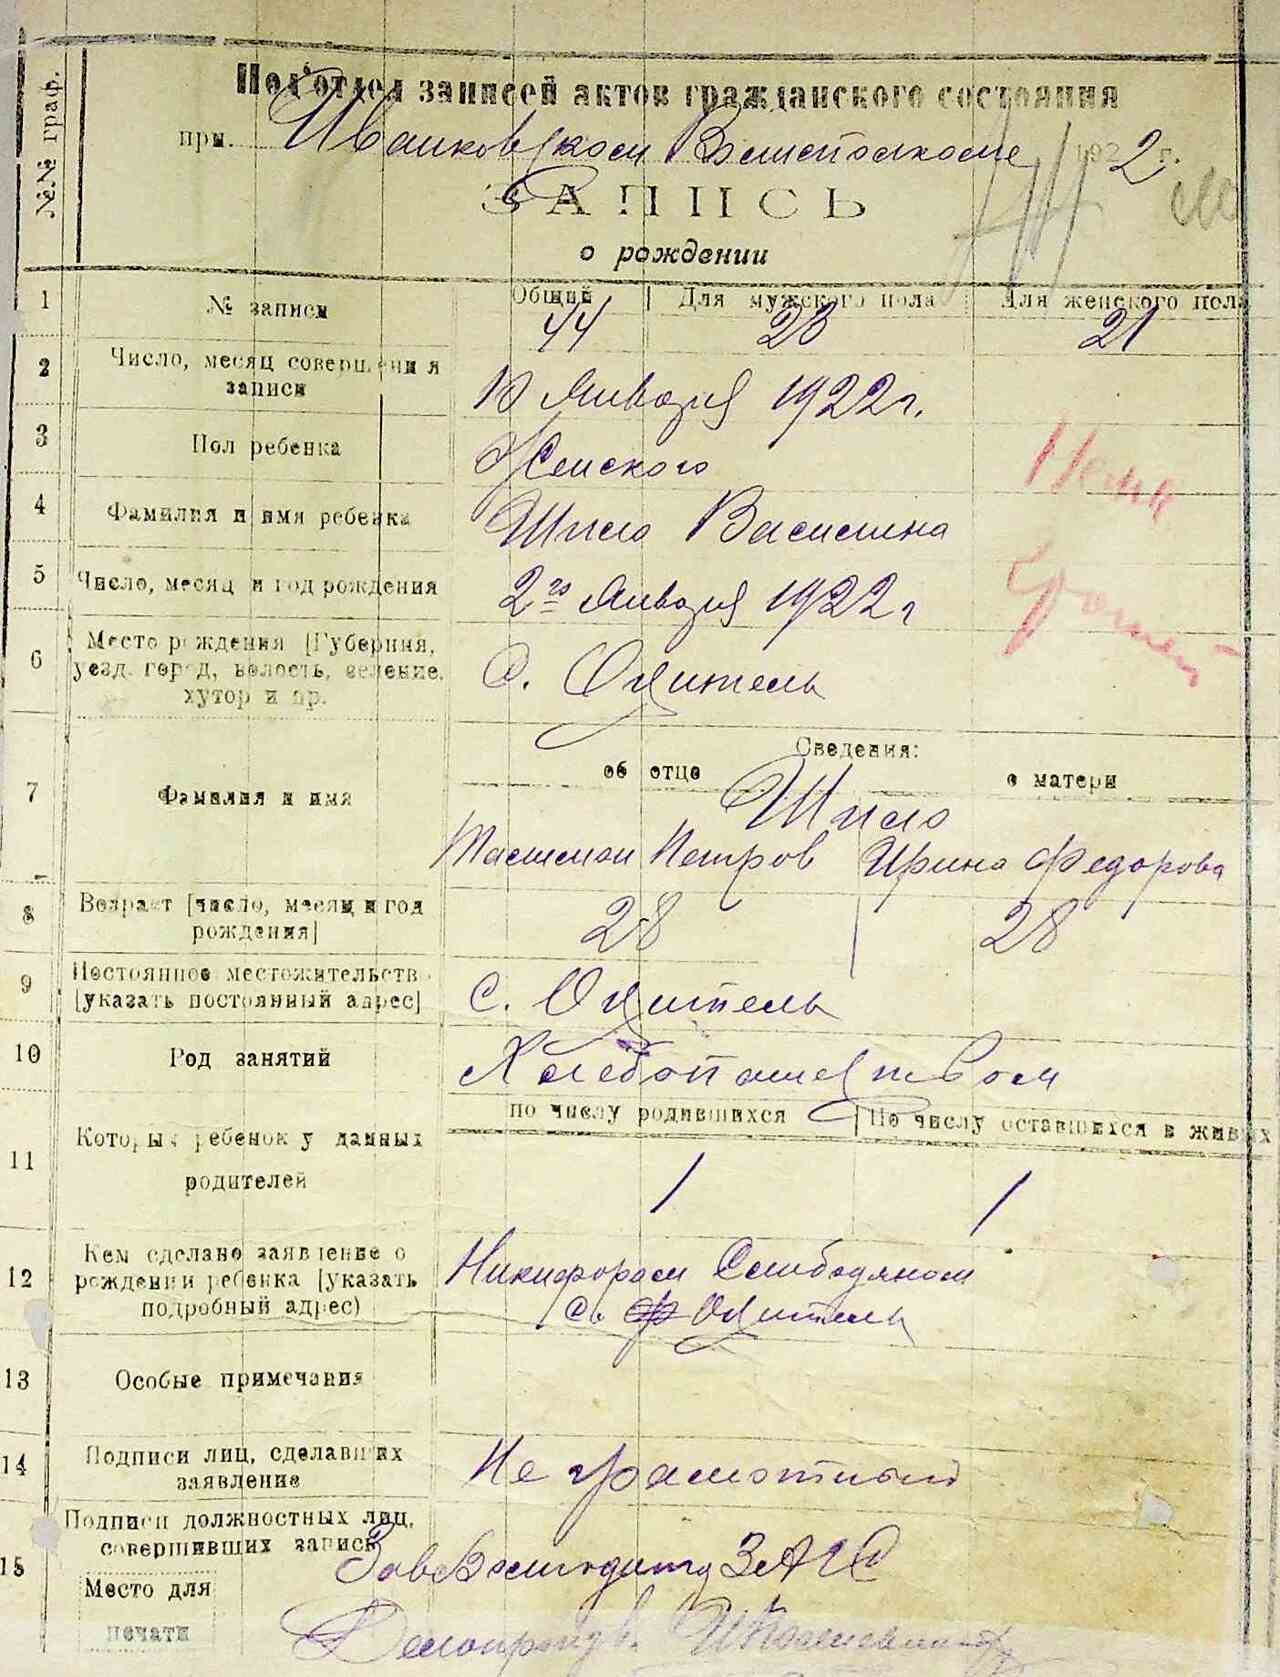 №№ граф.
Под'отдел записей актов гражданского состояния
при Иванковском Волисполкоме 1922 г.
ЗАПИСЬ
о рождении
1 № записи Общий Для мужского пола Для женского пола
44 23 21
2 Число, месяц совершения
записи
10 Января 1922 г.
3 Пол ребенка Женского
4 Фамилия и имя ребенка Шило Василина
5 Число, месяц и год рождения 2го Января 1922 г
6 Место рождения [Губерния,
уезд, город, волость, селение,
хутор и пр.
С.
Сведения:
об отце о матери
7 Фамилия и имя Шило
Петров Ирина Федорова
8 Возраст [число, месяц и год
рождения]
28 28
9 Постоянное местожительств
[указать постоянный адрес]
С.
10 Род занятий Хлебопашеством
по числу родившихся По числу оставшихся в живых
11 Который ребенок у данных
родителей
1 1
12 Кем сделано заявление о
рождении ребенка [указать
подробный адрес)
Никифором Слободяном
С.
13 Особые примечания
14 Подписи лиц, сделавших
заявление
Не грамотный
15 Подписи должностных лиц,
совершивших запись
Зав ЗАГС
Место для
печати
Делопроизв.